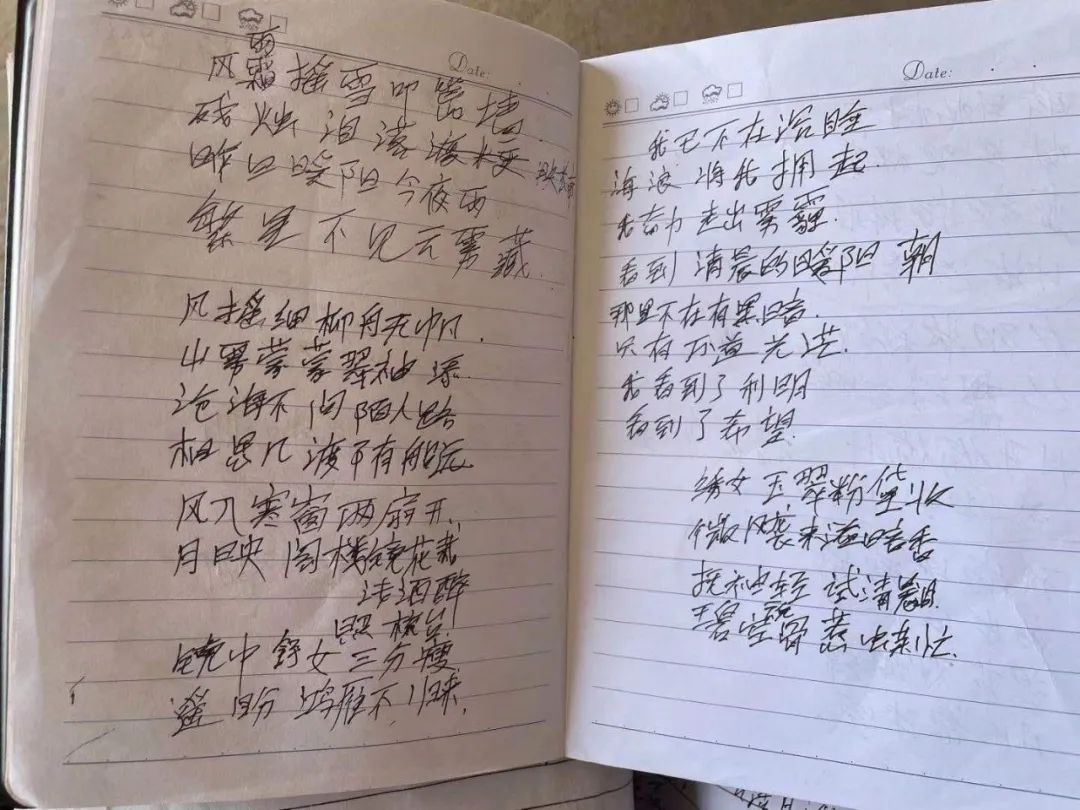 Date:
雨
风霜摇雪叩窗墙
残烛泪落渡
昨日暖阳今夜雨
繁星不见云雾藏.
风摇细柳舟无帆.
山雾蒙蒙翠袖添
沧海不问陌人路
相思几渡不有船远
风入寒窗两扇开.
月映阁楼镜花栽
洁酒醉
照梳妆
镜中舒女三分瘦
遥盼鸿雁不归来.
Date:
我已不在沉睡
海浪将我拥起.
我奋力走出雾霾.
看到清晨的暖阳 朝
那里不在有黑暗.
只有 光芒.
我看到了利明
看到了希望.
绣女玉翠粉黛妆
微风袭来溢暗香
抚袖轻试清晨
碧 露 惹虫亲忙.